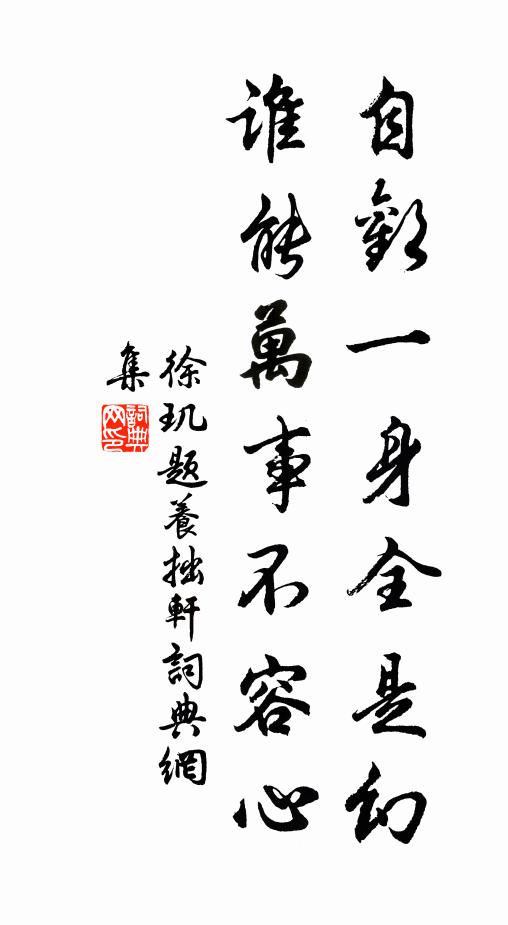 自觀一身全是幻
誰能萬事不容心
徐玑题養拙軒詞典網
集
詞典网印